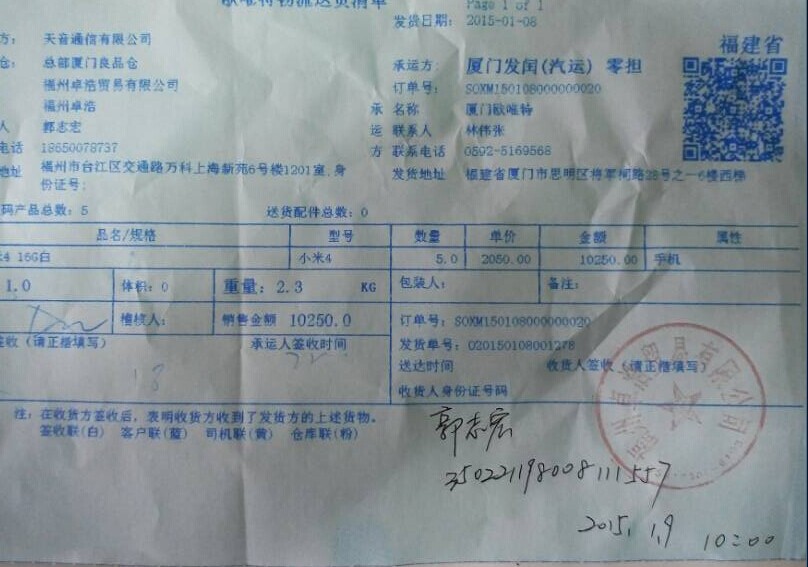 Page 1 of 1
发货日期： 2015-01-08
福建省
方： 天音通信有限公司
仓： 总部厦门良品仓
福州卓浩贸易有限公司
福州卓浩
人 郭志宏
电话 18650078737
地址 福州市台江区交通路万科上海新苑6号楼1201室,身
份证号:
承运方: 厦门发闰(汽运) 零担
订单号: SOXM150108000000020
承 名称 厦门欧唯特
运 联系人 林伟张
方 联系电话 0592-5169568
发货地址 福建省厦门市思明区将军祠路28号之一6楼西梯
码产品总数: 5 送货配件总数: 0
品名/规格 型号 数量 单价 金额 属性
4 16G白 小米4 5.0 2050.00 10250.00 手机
1.0 体积: 0 重量: 2.3 KG 包装人: 备注:
稽核人: 销售金额 10250.0
订单号: SOXM150108000000020
发货单号: 020150108001278
签收（请正楷填写） 承运人签收时间
送达时间 收货人签收（请正楷填写）
收货人身份证号码
注: 在收货方签收后，表明收货方收到了发货方的上述货物。
签收联(白) 客户联(蓝) 司机联(黄) 仓库联(粉)
郭志宏
350221198008111557
2015.1.9 10:00